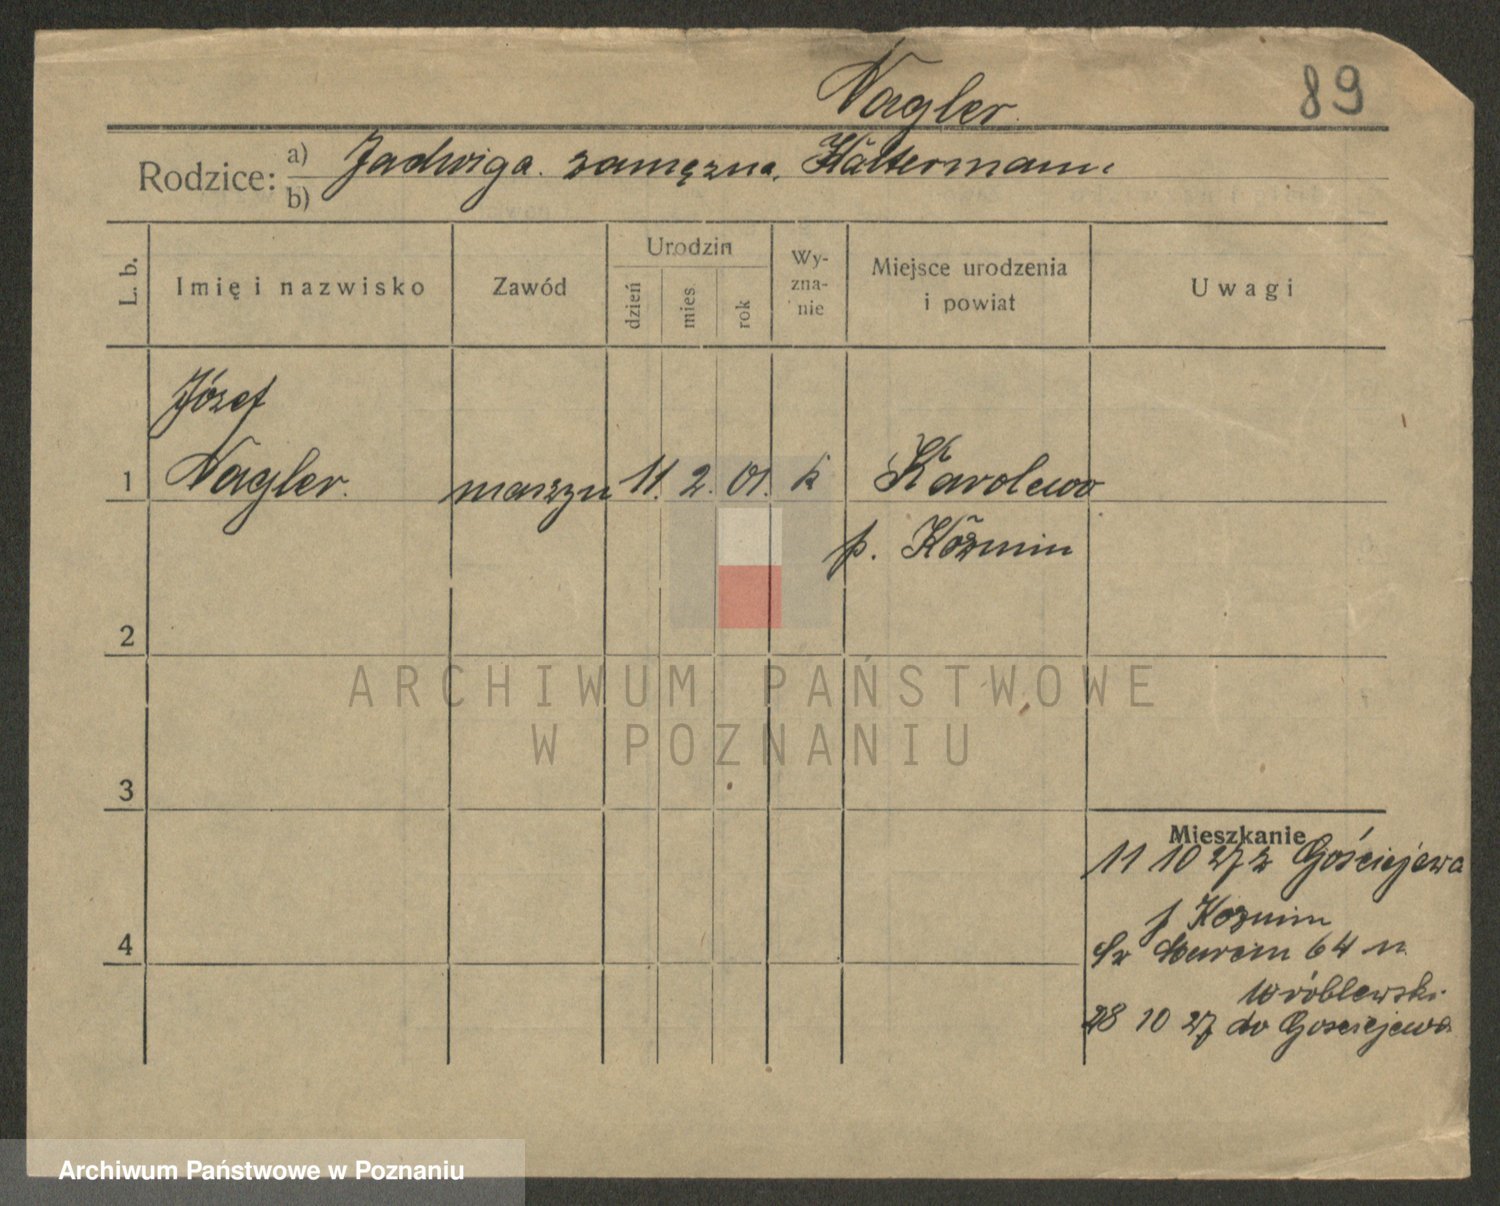 Nagler. 89
Rodzice: a) Jadwiga. zamężna. Kältermann.
b)
L. b. Imię i nazwisko Zawód Urodzin dzień mies. rok Wyznanie Miejsce urodzenia i powiat Uwagi
Józef
1 Nagler. maszyn 11. 2. 01. k Karolewo
p. Kóźmin
2
ARCHIWUM PAŃSTWOWE
W POZNANIU
3
Mieszkanie
11 10 27 z Gościejewa
p Kozmin
4 Św Marcin 64 u
Wróblewski.
28 10 27 do Gosciejewa
Archiwum Państwowe w Poznaniu